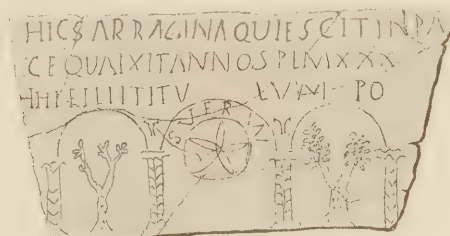 HIC SARRAGINA QUIESCIT IN PA
CE QUAIXIT ANNOS PLM XXX
FILII TITU LUM PO